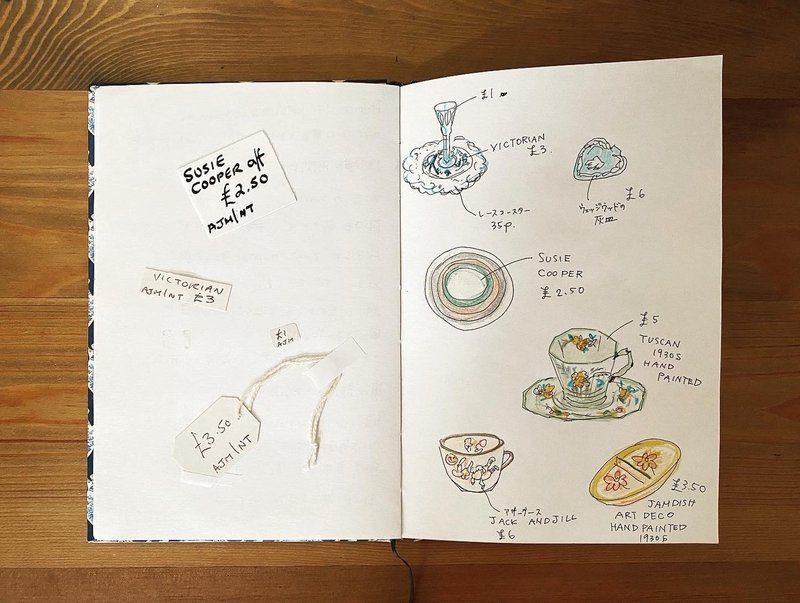 SUSIE
COOPER a/f
£2.50
AJM/NT
VICTORIAN
AJM/NT £3
£1
AJM
£3.50
AJM/NT
£1
VICTORIAN
£3.
レースコースター
35p.
£6
ウェッジウッドの
灰皿
SUSIE
COOPER
£2.50
£5
TUSCAN
1930S
HAND
PAINTED
マザーグース
JACK AND JILL
£6
£3.50
JAMDISH
ART DECO
HAND PAINTED
1930S